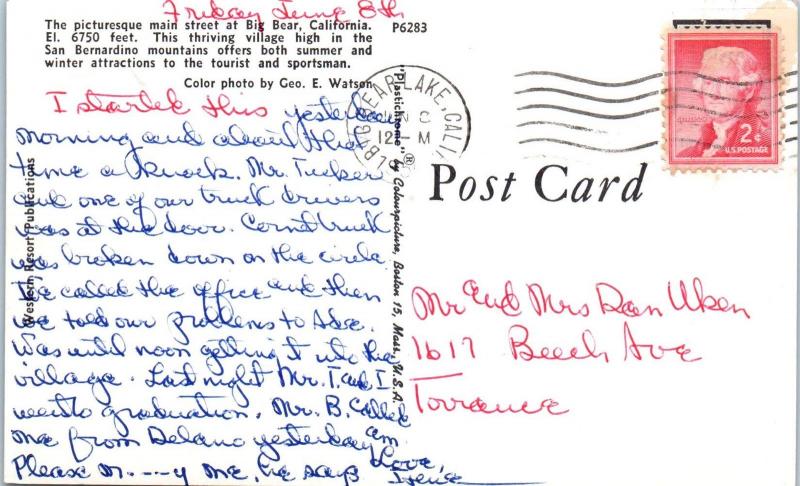 Friday June 8th
The picturesque main street at Big Bear, California. P6283
El. 6750 feet. This thriving village high in the
San Bernardino mountains offers both summer and
winter attractions to the tourist and sportsman.
Color photo by Geo. E. Watson
I started this yesterday
morning and about that
time a knock. Mr. Tucker
and one of our truck drivers
was at the door. Cement truck
was broken down on the circle.
We called the office and then
we told our problems to
Was until noon getting it into the
village. Last night Mr. T. and I
went to graduation. Mr. B. called
me from Delano yesterday am.
Please m----y me, he says Love,
Irene
Western Resort Publications
"Plastichrome" ® by Colourpicture, Boston 15, Mass., U.S.A.
BIG BEAR LAKE, CALIF.
JUN 8
12 - M
2¢
U.S. POSTAGE
Post Card
Mr and Mrs Dan Uken
1617 Beech Ave
Torrance